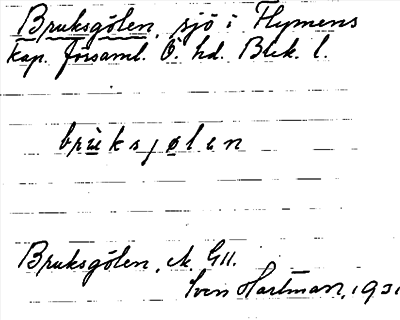 Bruksgölen, sjö i Flymens
kap. församl. Ö. hd. Blek. l.
brùksjølen
Bruksgölen, ek. G11.
Sven Hartman, 1931